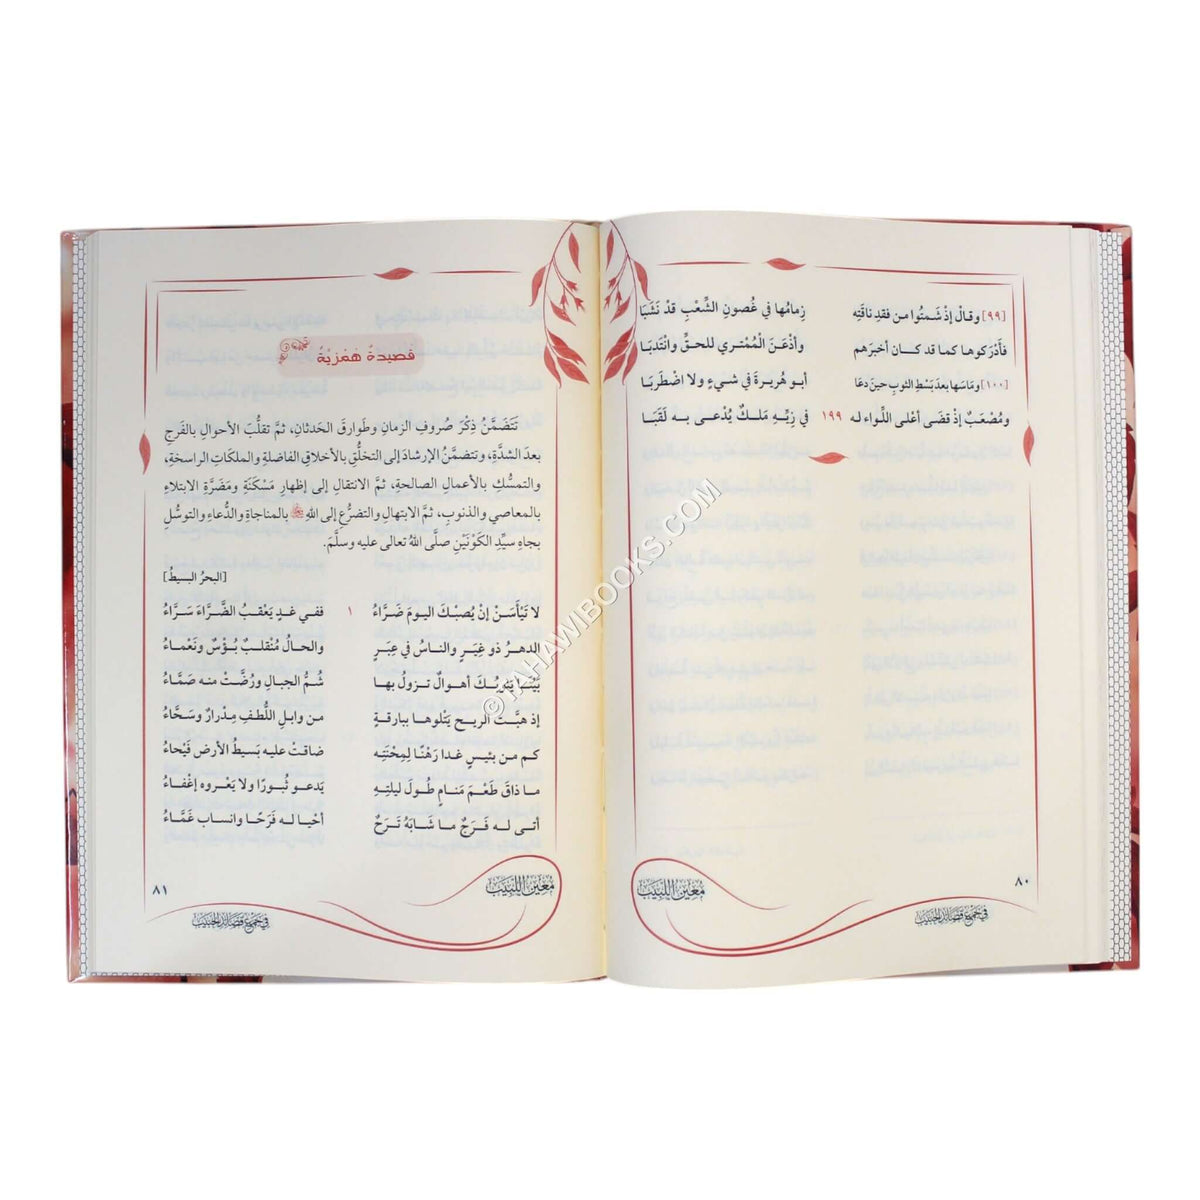 [٩٩] وقالْ إذْ شَمتُوا من فقدِ ناقَتِه زِمامُها في غُصونِ الشِّعْبِ قدْ نَشَبَا
فأَدْرَكوها كما قد كان أخبرَهم وأذْعَنَ الْمُمْتري للحقِّ وانْتدبَا
[١٠٠] ومَاسَها بعدَ بَسْطِ الثوبِ حينَ دعَا أبو هُريرةَ في شيءٍ ولا اضْطَربَا
ومُصْعَبٌ إذْ قضى أعْلى اللِّواء له ١٩٩ في زِيِّهِ مَلكٌ يُدْعى به لَقَبَا
معين اللبيب
٨٠
في جمع قصائد الحبيب
قصيدةٌ همزيّةٌ
تَتَضمَّنُ ذِكْرَ صُروفِ الزمانِ وطَوارقَ الحَدثانِ، ثمَّ تقلُّبَ الأحوالِ بالفَرجِ
بعدَ الشدَّةِ، وتتضمَّنُ الإرشادَ إلى التخلُّقِ بالأخلاقِ الفاضلةِ والملكاتِ الراسخةِ،
والتمسُّكِ بالأعمالِ الصالحةِ، ثمَّ الانتقالَ إلى إظهارِ مَسْكَنَةِ ومَضرَّةِ الابتلاءِ
بالمعاصي والذنوبِ، ثمَّ الابتهالَ والتضرُّعَ إلى اللهِ ﷻ بالمناجاةِ والدُّعاءِ والتوسُّلِ
بجاهِ سيِّدِ الكَوْنَيْنِ صلَّى اللهُ تعالى عليه وسلَّمَ.
[البحرُ البسيطُ]
لا تَيْأَسَنْ إنْ يُصبْكَ اليومَ ضَرَّاءُ ١ ففي غدٍ يَعْقبُ الضَّرَّاءَ سَرَّاءُ
الدهرُ ذو غِيَرٍ والناسُ في عِبَرٍ والحالُ مُنْقلبٌ بُؤْسٌ ونَعْماءُ
أهوالٌ تزولُ بها شُمُّ الجبالِ ورُضَّتْ منه صَمَّاءُ
إذ هبَّتْ الريح يَتْلوها ببارقةٍ من وابلِ اللُّطفِ مِدْرارٌ وسَحَّاءُ
كم من بئيسٍ غدا رَهْنًا لِمِحْنَتِه ضاقتْ عليه بَسيطُ الأرضِ فَيْحاءُ
ما ذاقَ طَعْمَ مَنامٍ طُولَ ليلتِهِ يَدعو ثُبورًا ولا يَعْروه إغْفاءُ
أتى له فَرَجٌ ما شَابَهُ تَرَحٌ أحْيا له فَرَحًا وانساب غَمَّاءُ
معين اللبيب
٨١
في جمع قصائد الحبيب
©TAHAWIBOOKS.COM